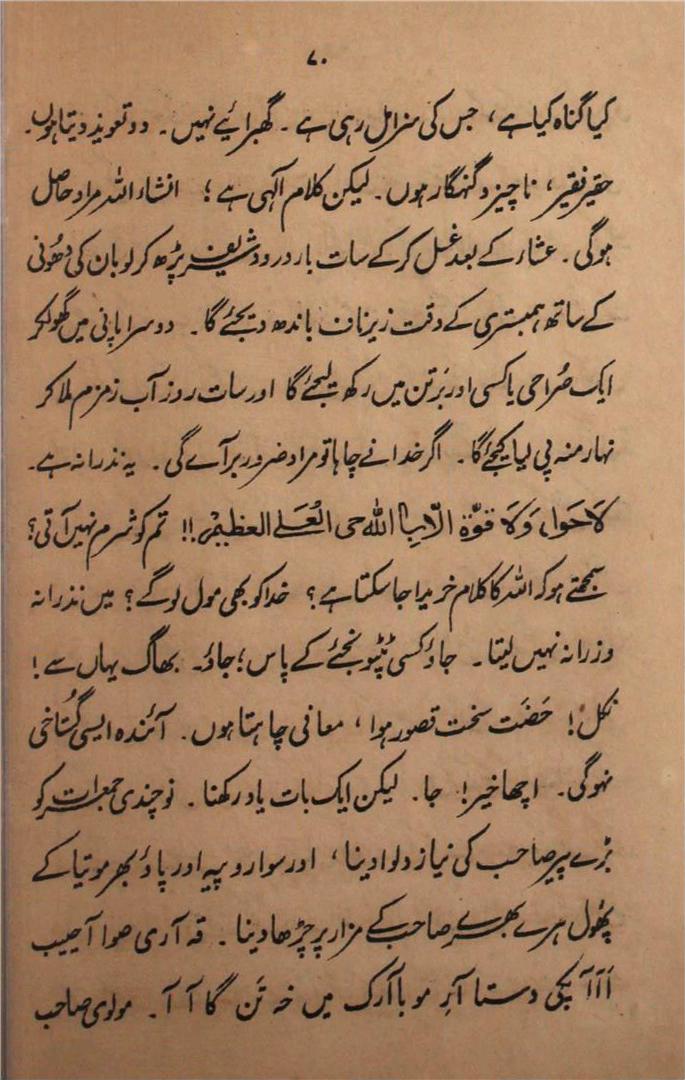 ۷۰
کیا گناہ کیا ہے، جس کی سزا مل رہی ہے۔ گھبرائیے نہیں۔ دو تعویذ دیتا ہوں۔
حقیر فقیر، ناچیز و گنہگار ہوں۔ لیکن کلام الٰہی ہے؛ انشاء اللہ مراد حاصل
ہوگی۔ عشاء کے بعد غسل کر کے سات بار درود شریف پڑھ کر لوبان کی دھُونی
کے ساتھ ہمبستری کے وقت زیرناف باندھ دیجئے گا۔ دوسرا پانی میں گھولکر
ایک صُراحی یا کسی اور بَرتن میں رکھ لیجئے گا اور سات روز آب زمزم ملا کر
نہار منہ پی لیا کیجئے گا۔ اگر خدا نے چاہا تو مراد ضرور بر آے گی۔ یہ نذرانہ ہے۔
لَاحَول وَلَا قوَّۃ الّا بِا اللّٰہ حی العُلَے العظیمْ!! تم کو شرم نہیں آتی؟
سمجھتے ہو کہ اللہ کا کلام خریدا جا سکتا ہے؟ خدا کو بھی مول لوگے؟ میں نذرانہ
وزرانہ نہیں لیتا۔ جاؤ کسی ٹٹپونجئے کے پاس؛ جاؤ۔ بھاگ یہاں سے!
نکل! حَضَت سخت قصور ہوا، معافی چاہتا ہوں۔ آئندہ ایسی گُستاخی
نہوگی۔ اچھا خیر! جا۔ لیکن ایک بات یاد رکھنا۔ نوچندی جمعرات کو
بڑے پیر صاحب کی نیاز دلوا دینا، اور سوا روپیہ اور پاؤ بھر موتیا کے
پھُول ہرے بھرے صاحب کے مزار پر چڑھا دینا۔ قہ آری صوا آحیب
اَآآ پکی دستا آرِ مو با آرک میں خہ تَن گا آ آ۔ مولوی صاحب